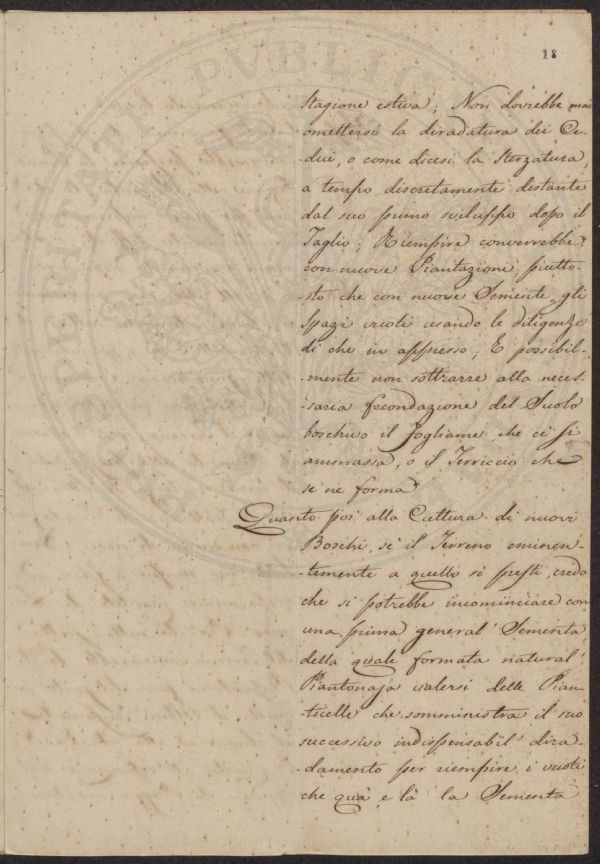 18
Stagione estiva; Non dovrebbe mai
omettersi la diradatura dei Ce-
dui, o come dicesi la Sterzatura,
a tempo discretamente distante
dal suo primo sviluppo dopo il
Taglio; Riempire converrebbe
con nuove Piantazione piutto-
sto che con nuove Semente gli
Spazi vuoti usando le diligenze
di che in appresso; E possibil-
-mente non sottrarre alla neces-
-saria fecondazione del Suolo
boschivo il Fogliame che ci si
ammassa, o il Terriccio che
se ne forma
Quanto poi alla Cultura di nuovi
Boschi, se il Terreno eminen-
-temente a quello si presti, credo
che si potrebbe incominciare con
una prima general' Sementa
della quale formata natural'
Piantonaja valersi delle Pian-
-ticelle che somministra il suo
successivo indispensabil' dira-
-damento per riempire i vuoti
che quà, e là la Sementa